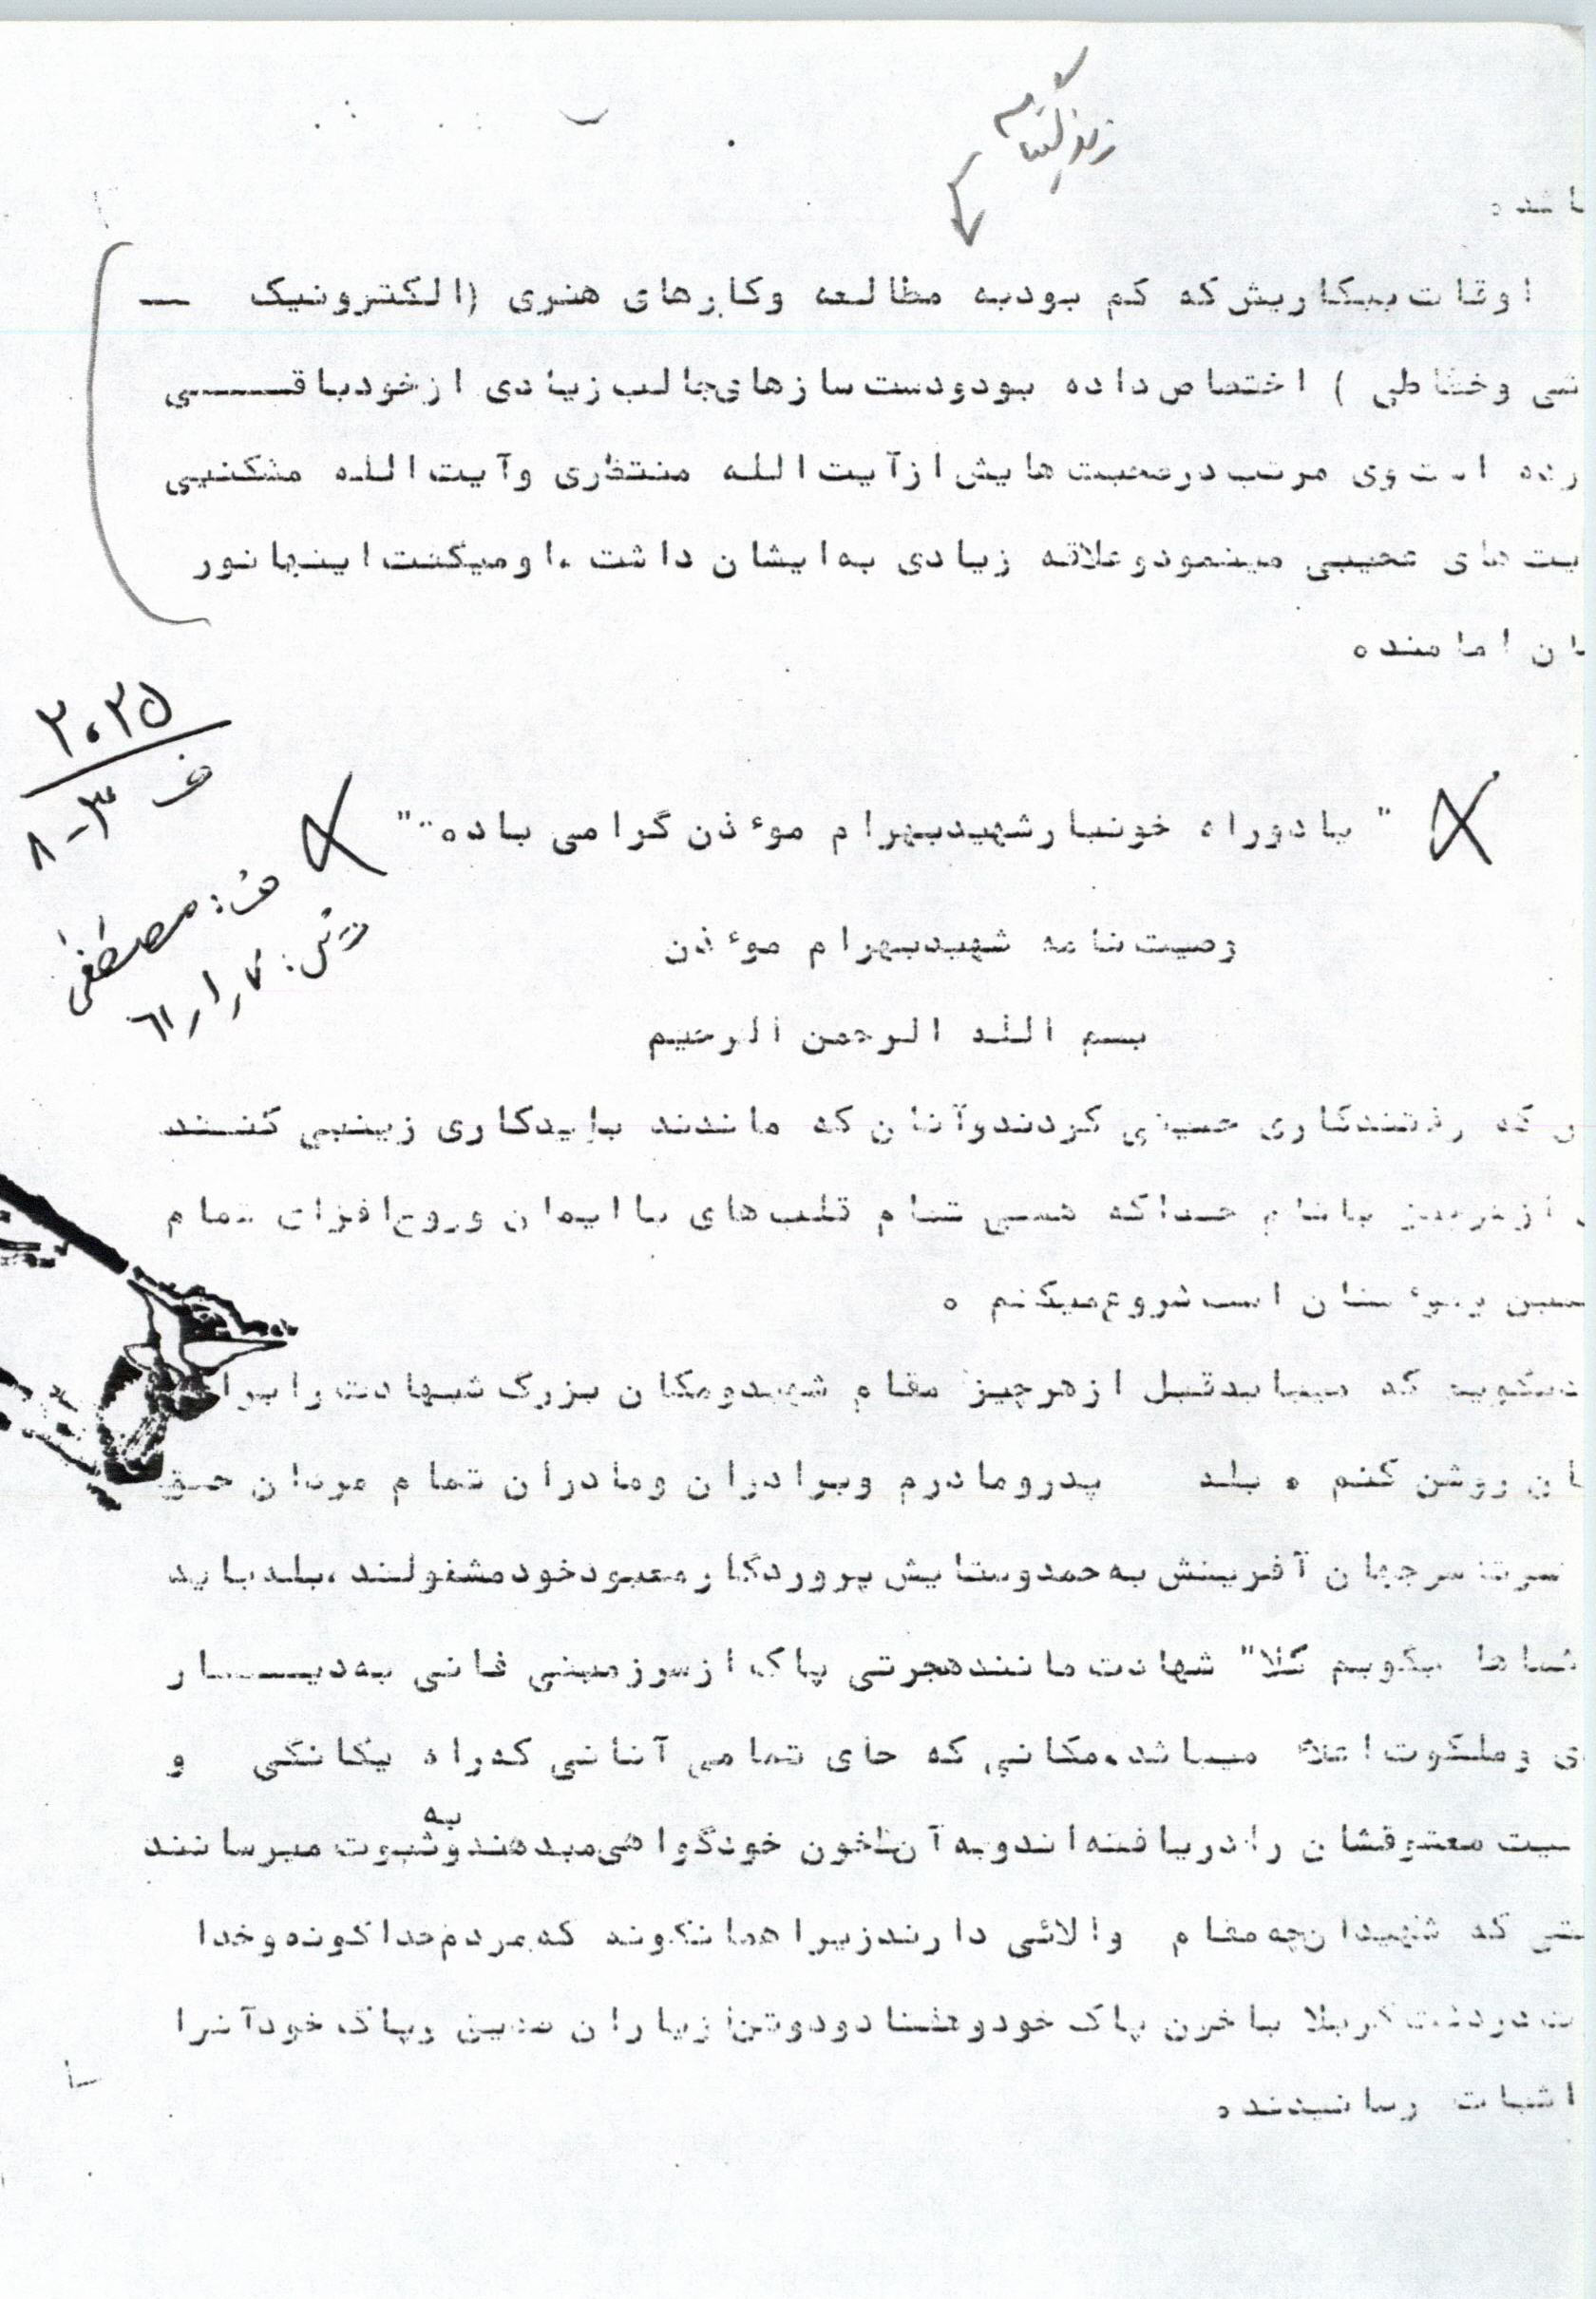 زندگینامه
اوقات بیکاریش که کم بودبه مطالعه وکارهای هنری (الکترونیک —
شی وخطاطی ) اختصاص داده بودودست سازهای جالب زیادی ازخودباقی
است وی مرتب درصحبت هایش ازآیت الله منتظری وآیت الله مشکینی
های عجیبی مینمودوعلاقه زیادی به ایشان داشت ،اومیگفت اینهانور
امامنده
۲۰۲۵
ف ۳-۸
" یادوراه خونبارشهیدبهرام موءذن گرامی باده"
ف: مصطفی
ش: ۶۱/۱/۷
وصیت نامه شهیدبهرام موءذن
بسم الله الرحمن الرحیم
که رفتندکاری حسینی کردندوآنان که ماندند بایدکاری زینبی کنند
بانام خداکه تمام قلب های باایمان وروح افزای تمام
است شروع میکنم ه
که میبایدقبل ازهرچیز مقام شهیدومکان بزرگ شهادت رابرای
روشن کنم ه بله پدرومادرم وبرادران ومادران تمام مردان حق
سرتاسرجهان آفرینش به حمدوستایش پروردگارمعبودخودمشغولند ،بله باید
بگویم کلا" شهادت مانندهجرتی پاک ازسرزمینی فانی به دیار
وملکوت اعلاء میباشد،مکانی که جای تمامی آنانی که راه یگانگی و
معشوقشان رادریافته اندوبه آن باخون خودگواهی میدهندو به ثبوت میرسانند
که شهیدان چه مقام والائی دارندزیرا همانگونه که مردم خداگونه وخدا
دردشت کربلا باخون پاک خودوهفتادودوتن ازیاران پاک خودآنرا
اثبات رسانیدنده